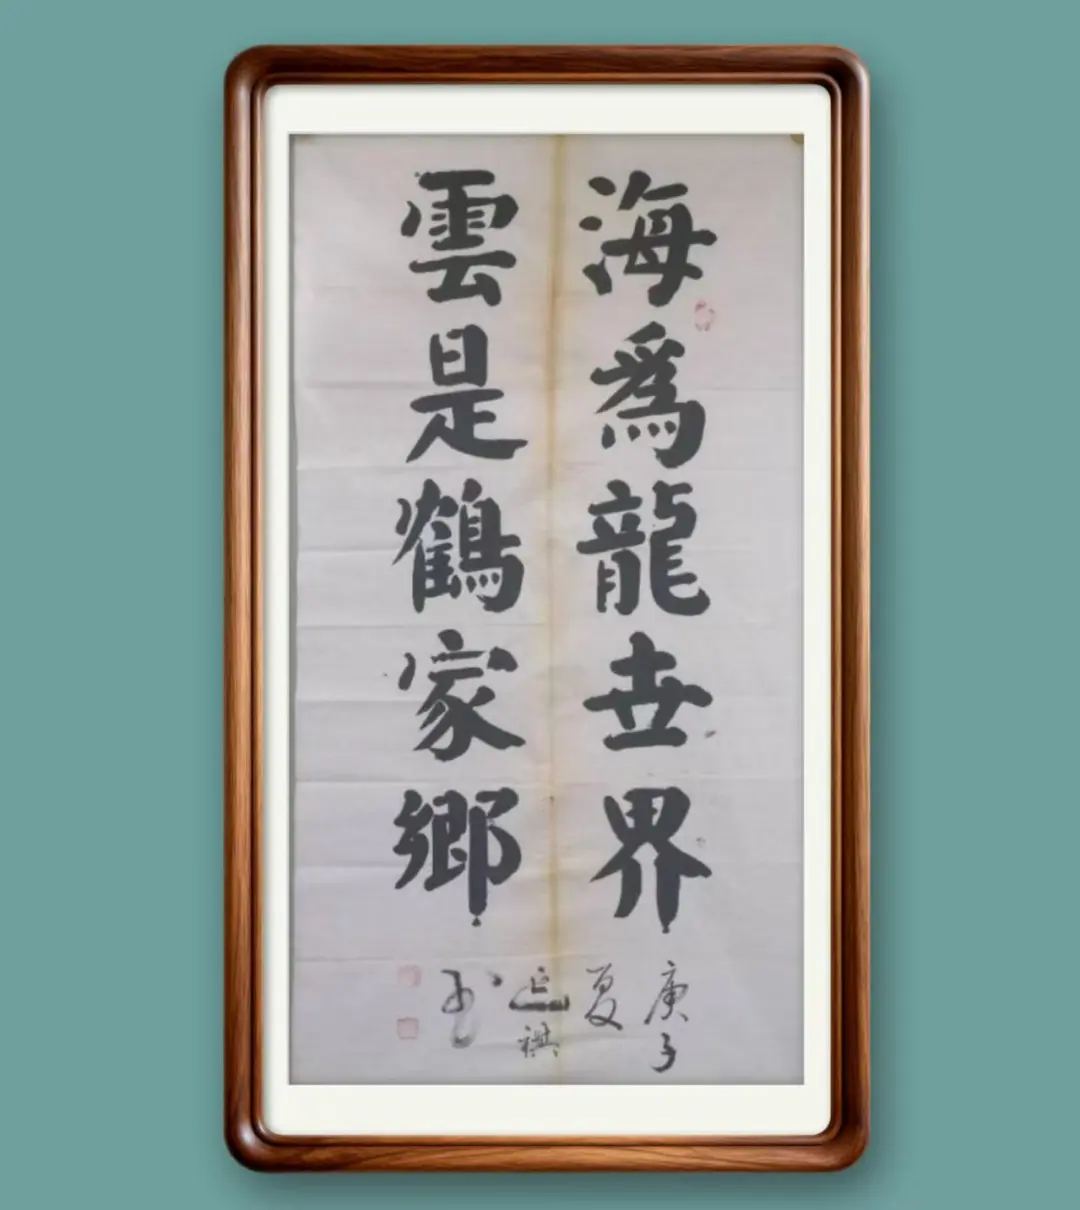 海為龍世界
雲是鶴家鄉
庚子
夏
祺
书